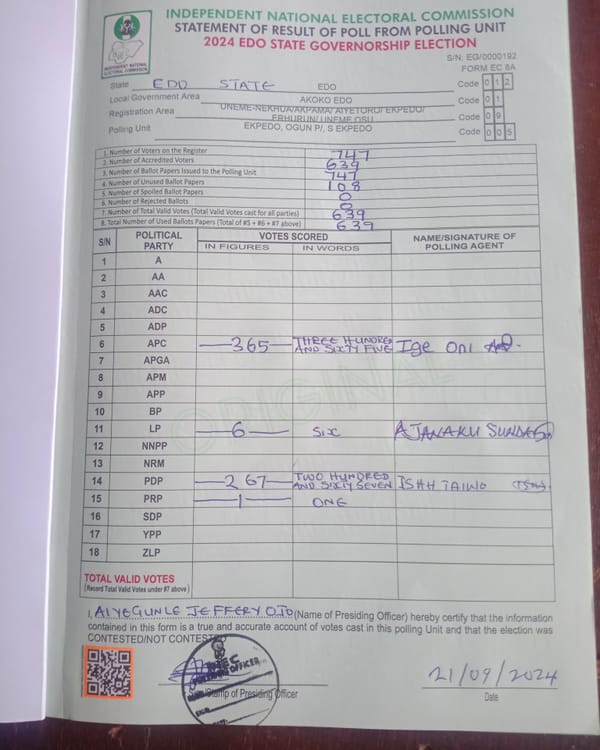 INDEPENDENT NATIONAL ELECTORAL COMMISSION
STATEMENT OF RESULT OF POLL FROM POLLING UNIT
2024 EDO STATE GOVERNORSHIP ELECTION
INDEPENDENT NATIONAL
ELECTORAL COMMISSION
S/N: EG/0000192
FORM EC 8A
State EDO STATE EDO Code 0 1 2
Local Government Area AKOKO EDO Code 0 1
Registration Area UNEME-NEKHUA/AKPAMA/ AIYETORO/ EKPEDO/ ERHURUN/ UNEME OSU Code 0 9
Polling Unit EKPEDO, OGUN P/, S EKPEDO Code 0 0 5
1. Number of Voters on the Register 747
2. Number of Accredited Voters 639
3. Number of Ballot Papers Issued to the Polling Unit 747
4. Number of Unused Ballot Papers 108
5. Number of Spoiled Ballot Papers 0
6. Number of Rejected Ballots 0
7. Number of Total Valid Votes (Total Valid Votes cast for all parties) 639
8. Total Number of Used Ballots Papers (Total of #5 + #6 + #7 above) 639
S/N POLITICAL PARTY VOTES SCORED NAME/SIGNATURE OF POLLING AGENT
IN FIGURES IN WORDS
1 A
2 AA
3 AAC
4 ADC
5 ADP
6 APC 365 THREE HUNDRED AND SIXTY FIVE Ige Oni
7 APGA
8 APM
9 APP
10 BP
11 LP 6 SIX AJANAKU SUNDAY
12 NNPP
13 NRM
14 PDP 267 TWO HUNDRED AND SIXTY SEVEN ISHH TAIWO
15 PRP 1 ONE
16 SDP
17 YPP
18 ZLP
ORIGINAL
TOTAL VALID VOTES
(Record Total Valid Votes under #7 above)
I, AIYEGUNLE JEFFERY OJO (Name of Presiding Officer) hereby certify that the information
contained in this form is a true and accurate account of votes cast in this polling Unit and that the election was
CONTESTED/NOT CONTESTED
INEC
OFFICER
Stamp of Presiding Officer
21/09/2024
Date